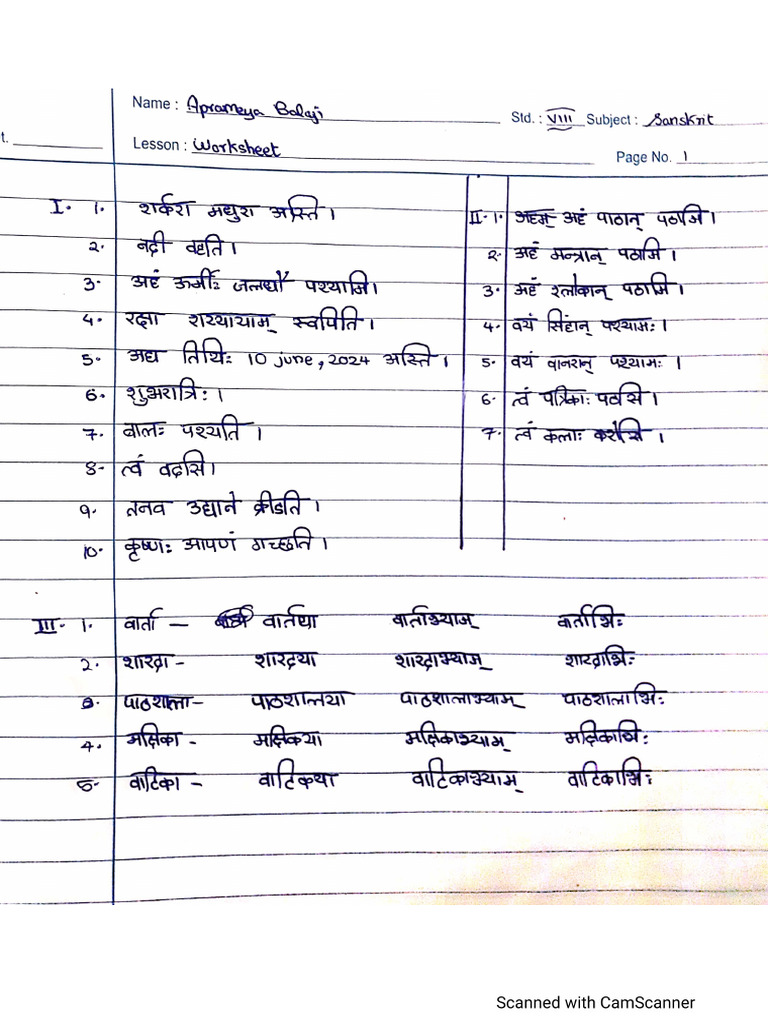 Name : Aprameya Balaji
Std. : VIII Subject : Sanskrit
t.
Lesson : Worksheet
Page No. 1
I. 1. शर्करा मधुरा अस्ति।
2. नदी वहति।
3. अहं ऊर्मीः जलधौ पश्यामि।
4. रक्षा शय्यायाम् स्वपिति।
5. अद्य तिथिः 10 june, 2024 अस्ति।
6. शुभरात्रिः।
7. बालः पश्यति।
8. त्वं वदसि।
9. तनव उद्याने क्रीडति।
10. कृष्णः आपणं गच्छति।
II. 1. अहं पाठान् पठामि।
2. अहं मन्त्रान् पठामि।
3. अहं श्लोकान् पठामि।
4. वयं सिंहान् पश्यामः।
5. वयं वानरान् पश्यामः।
6. त्वं पत्रिकाः पठसि।
7. त्वं कलाः करोसि।
III. 1. वार्ता – वार्तया वार्ताभ्याम् वार्ताभिः
2. शारदा - शारदया शारदाभ्याम् शारदाभिः
3. पाठशाला - पाठशालया पाठशालाभ्याम् पाठशालाभिः
4. मक्षिका - मक्षिकया मक्षिकाभ्याम् मक्षिकाभिः
5. वाटिका - वाटिकया वाटिकाभ्याम् वाटिकाभिः
Scanned with CamScanner